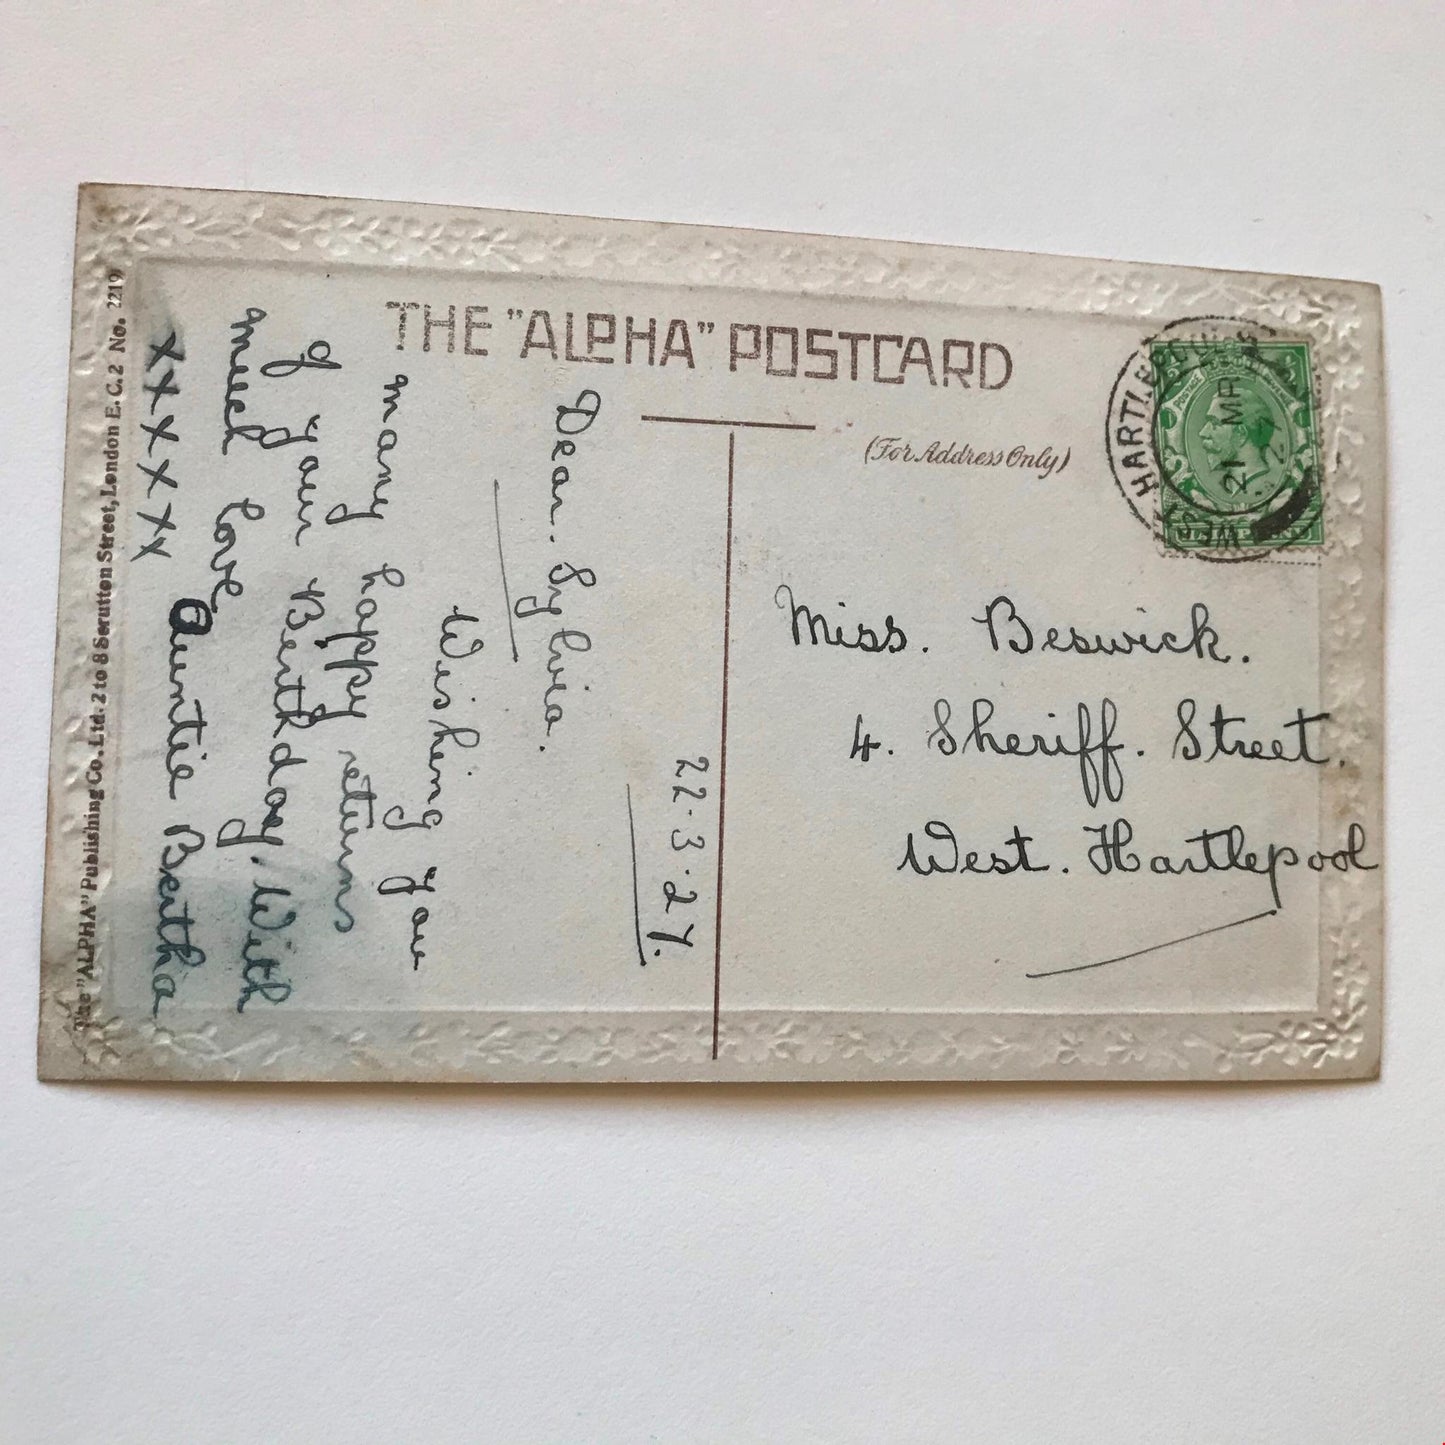 THE "ALPHA" POSTCARD
(For Address Only)
WEST HARTLEPOOL
21 MR
27
22.3.27.
Dear. Sylvia.
Wishing you
many happy returns
of your Birthday. With
much love
Auntie Bertha
x x x x x x
Miss. Beswick.
4. Sheriff. Street.
West. Hartlepool
The "ALPHA" Publishing Co., Ltd. 2 to 8 Scrutton Street, London E.C. 2 No. 2219